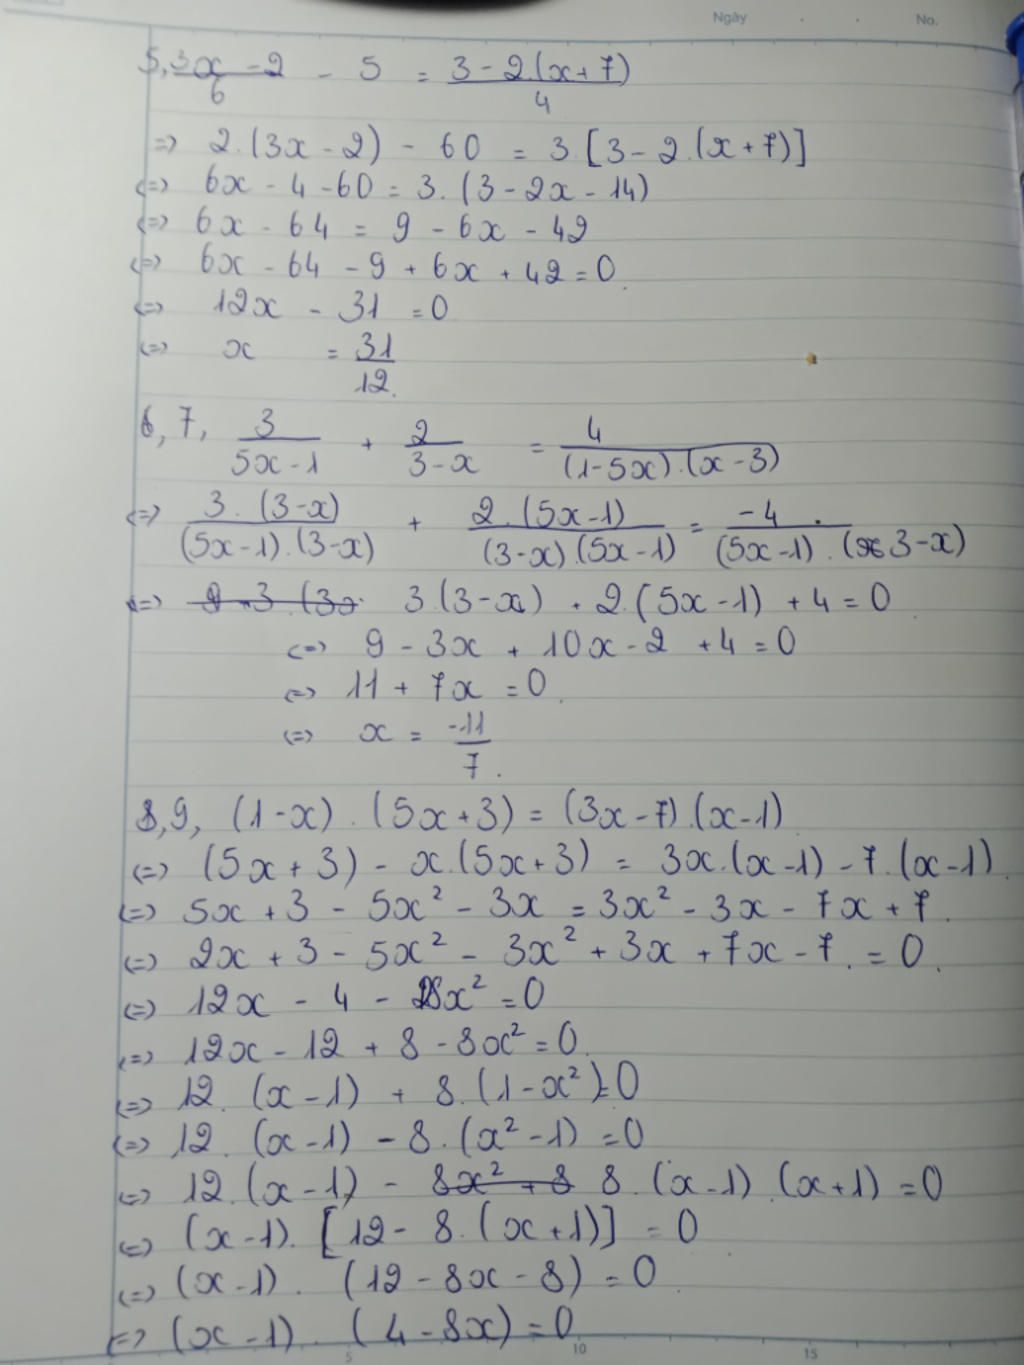 Ngày . . No.
5, \frac{3x - 2}{6} - 5 = \frac{3 - 2.(x+7)}{4}
=> 2.(3x - 2) - 60 = 3.[3 - 2.(x+7)]
<=> 6x - 4 - 60 = 3.(3 - 2x - 14)
<=> 6x - 64 = 9 - 6x - 42
<=> 6x - 64 - 9 + 6x + 42 = 0.
<=> 12x - 31 = 0
<=> x = \frac{31}{12}.
6, 7, \frac{3}{5x - 1} + \frac{2}{3 - x} = \frac{4}{(1 - 5x).(x - 3)}
<=> \frac{3.(3-x)}{(5x-1).(3-x)} + \frac{2.(5x-1)}{(3-x).(5x-1)} = \frac{-4}{(5x-1).(3-x)}
<=> 3.(3-x) + 2.(5x-1) + 4 = 0
<=> 9 - 3x + 10x - 2 + 4 = 0
<=> 11 + 7x = 0.
<=> x = \frac{-11}{7}.
8, 9, (1-x).(5x+3) = (3x-7).(x-1)
<=> (5x+3) - x.(5x+3) = 3x.(x-1) - 7.(x-1).
<=> 5x + 3 - 5x² - 3x = 3x² - 3x - 7x + 7.
<=> 2x + 3 - 5x² - 3x² + 3x + 7x - 7. = 0.
<=> 12x - 4 - 8x² = 0
<=> 12x - 12 + 8 - 8x² = 0.
<=> 12.(x-1) + 8.(1-x²) = 0
<=> 12.(x-1) - 8.(x²-1) = 0
<=> 12.(x-1) - 8x² + 8 8.(x-1).(x+1) = 0
<=> (x-1).[12 - 8.(x+1)] = 0
<=> (x-1).(12 - 8x - 8) = 0
<=> (x-1).(4 - 8x) = 0
5 10 15